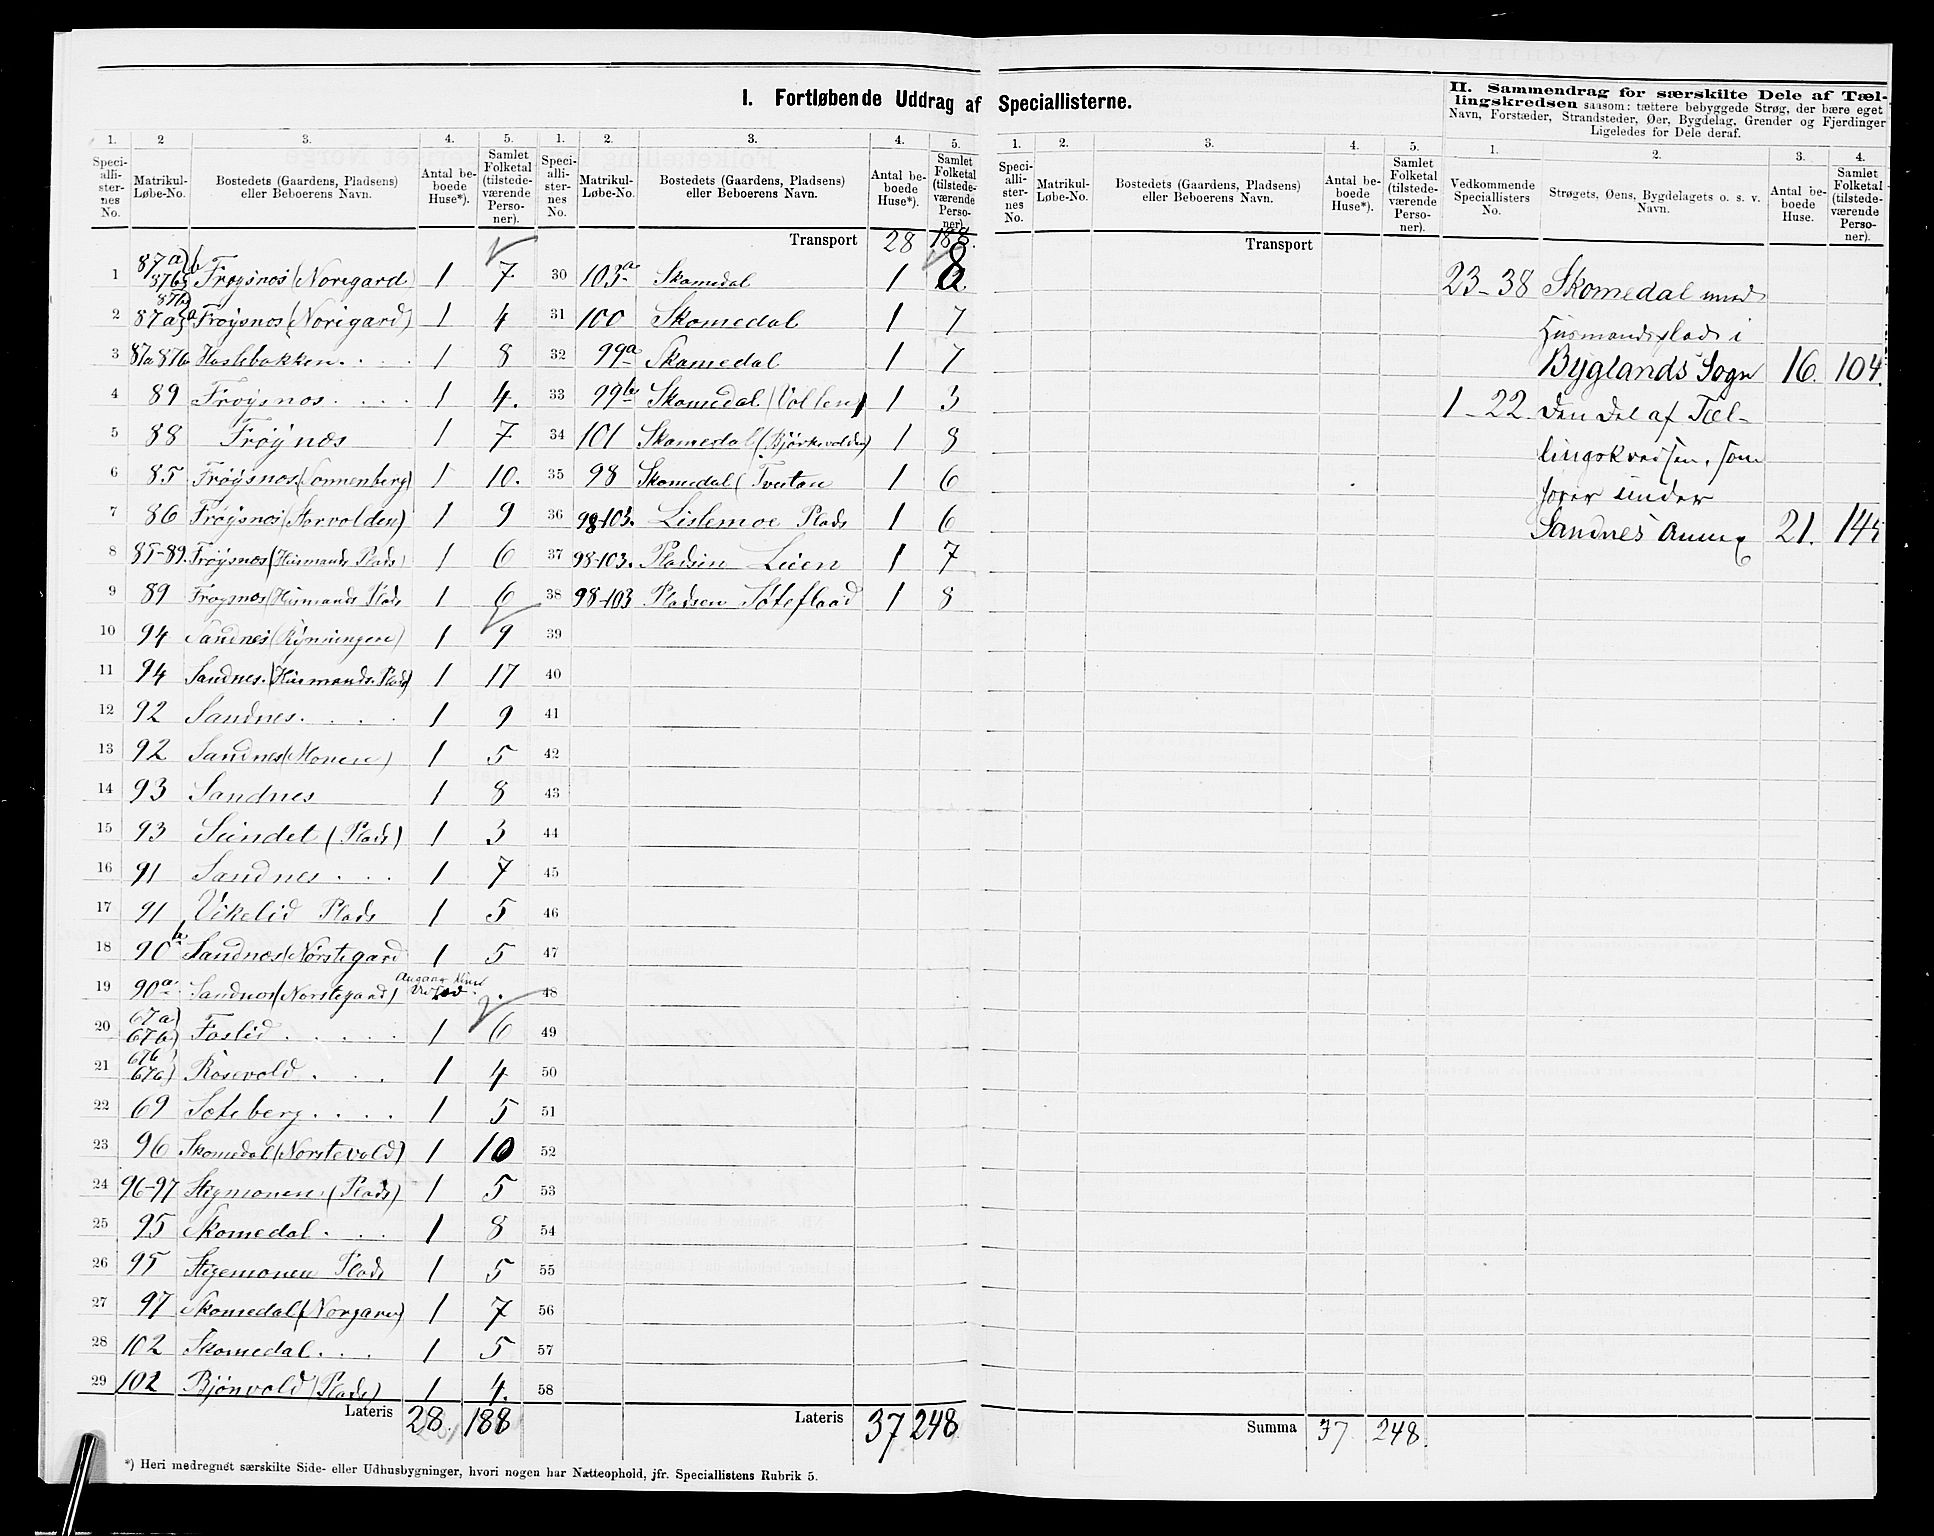 I. Fortløbende Uddrag af Speciallisterne.
1. 2 3. 4. 5.
Speciallisternes No. Matrikul-Løbe-No. Bostedets (Gaardens, Pladsen) eller Beboerens Navn. Antal beboede Huse*). Samlet Folketal (tilstedeværende Personer).
1 87a 87b b Frøysnes (Norigard 1 7
2 87b 87a a Frøysnes (Norigard) 1 4
3 87a 87b Haslebakken . . . 1 8
4 89 Frøysnes . . . . 1 4.
5 88 Frøynæs 1 7
6 85 Frøysnes (Sonnenberg) 1 10.
7 86 Frøysnes (Storvolden) 1 9
8 85-89. Frøysnæs (Husmands Plads) 1 6
9 89 Frøysnæs (Husmands Plads 1 6
10 94 Sandnes (Rynningen) 1 9
11 94 Sandnes. (Husmands. Plads) 1 17
12 92 Sandnes . . . . 1 9
13 92 Sandnes (Monen) 1 5
14 93 Sandnes 1 8
15 93 Sundet (Plads) 1 3
16 91 Sandnes . . . 1 7
17 91 Vikelid Plads 1 5
18 90b Sandnæs (Norstegard 1 5
19 90a Sandnes (Norstegaard)
20 67a) 67b) Foslid . . . . . 1 6
21 67b) 67a) Rosevold . . . 1 4
22 69 Sæteberg . . . . 1 5
23 96 Skomedal (Norstevold) 1 10
24 96-97 Stigmonen (Plads) 1 5
25 95 Skomedal . . . 1 8
26 95 Stigemonen Plads 1 5
27 97 Skomedal (Norgaren) 1 7
28 102 Skomedal . . . 1 5
29 102 Bjønvold (Plads) 1 4.
Lateris 28. 188
*) Heri medregnet særskilte Side- eller Udhusbygninger, hvori nogen har Natteophold, jfr. Speciallistens Rubrik 5.
1. 2. 3. 4. 5.
Speciallisternes No. Matrikul-Løbe-No. Bostedets (Gaardens, Pladsen) eller Beboerens Navn. Antal beboede Huse*). Samlet Folketal (tilstedeværende Personer).
Transport 28 188.
30 103a Skomedal 1 8
31 100 Skomedal 1 7
32 99a Skomedal 1 7
33 99b Skomedal (Vollen) 1 3
34 101 Skomedal (Bjørkevolden) 1 8
35 98 Skomedal (Tveitan 1 6
36 98-103. Lislemoe Plads 1 6
37 98-103. Pladsen Lien 1 7
38 98-103 Pladsen Sōteflaad 1 8
39
40
41
42
43
44
45
46
47
48
49
50
51
52
53
54
55
56
57
58
Lateris 37 248
1. 2. 3. 4. 5.
Speciallisternes No. Matrikul-Løbe-No. Bostedets (Gaardens, Pladsen) eller Beboerens Navn. Antal beboede Huse*). Samlet Folketal (tilstedeværende Personer).
Transport
Summa 37 248.
II. Sammendrag for særskilte Dele af Tællingskredsen saasom: tættere bebyggede Strøg, der bære eget
Navn, Forstæder, Strandsteder, Øer, Bygdelag, Grender og Fjerdinger
Ligeledes for Dele deraf.
1. 2. 3. 4.
Vedkommende Speciallisters No. Strøgets, Øens, Bygdelagets o. s. v. Navn. Antal beboede Huse. Samlet Folketal (tilstedeværende Personer).
23-38 Skomedal med
Husmandsplads i
Byglands Sogn 16. 104.
1-22 den Del af Tæl-
lingskredsen, som
hører under
Sandnes Annex 21. 144